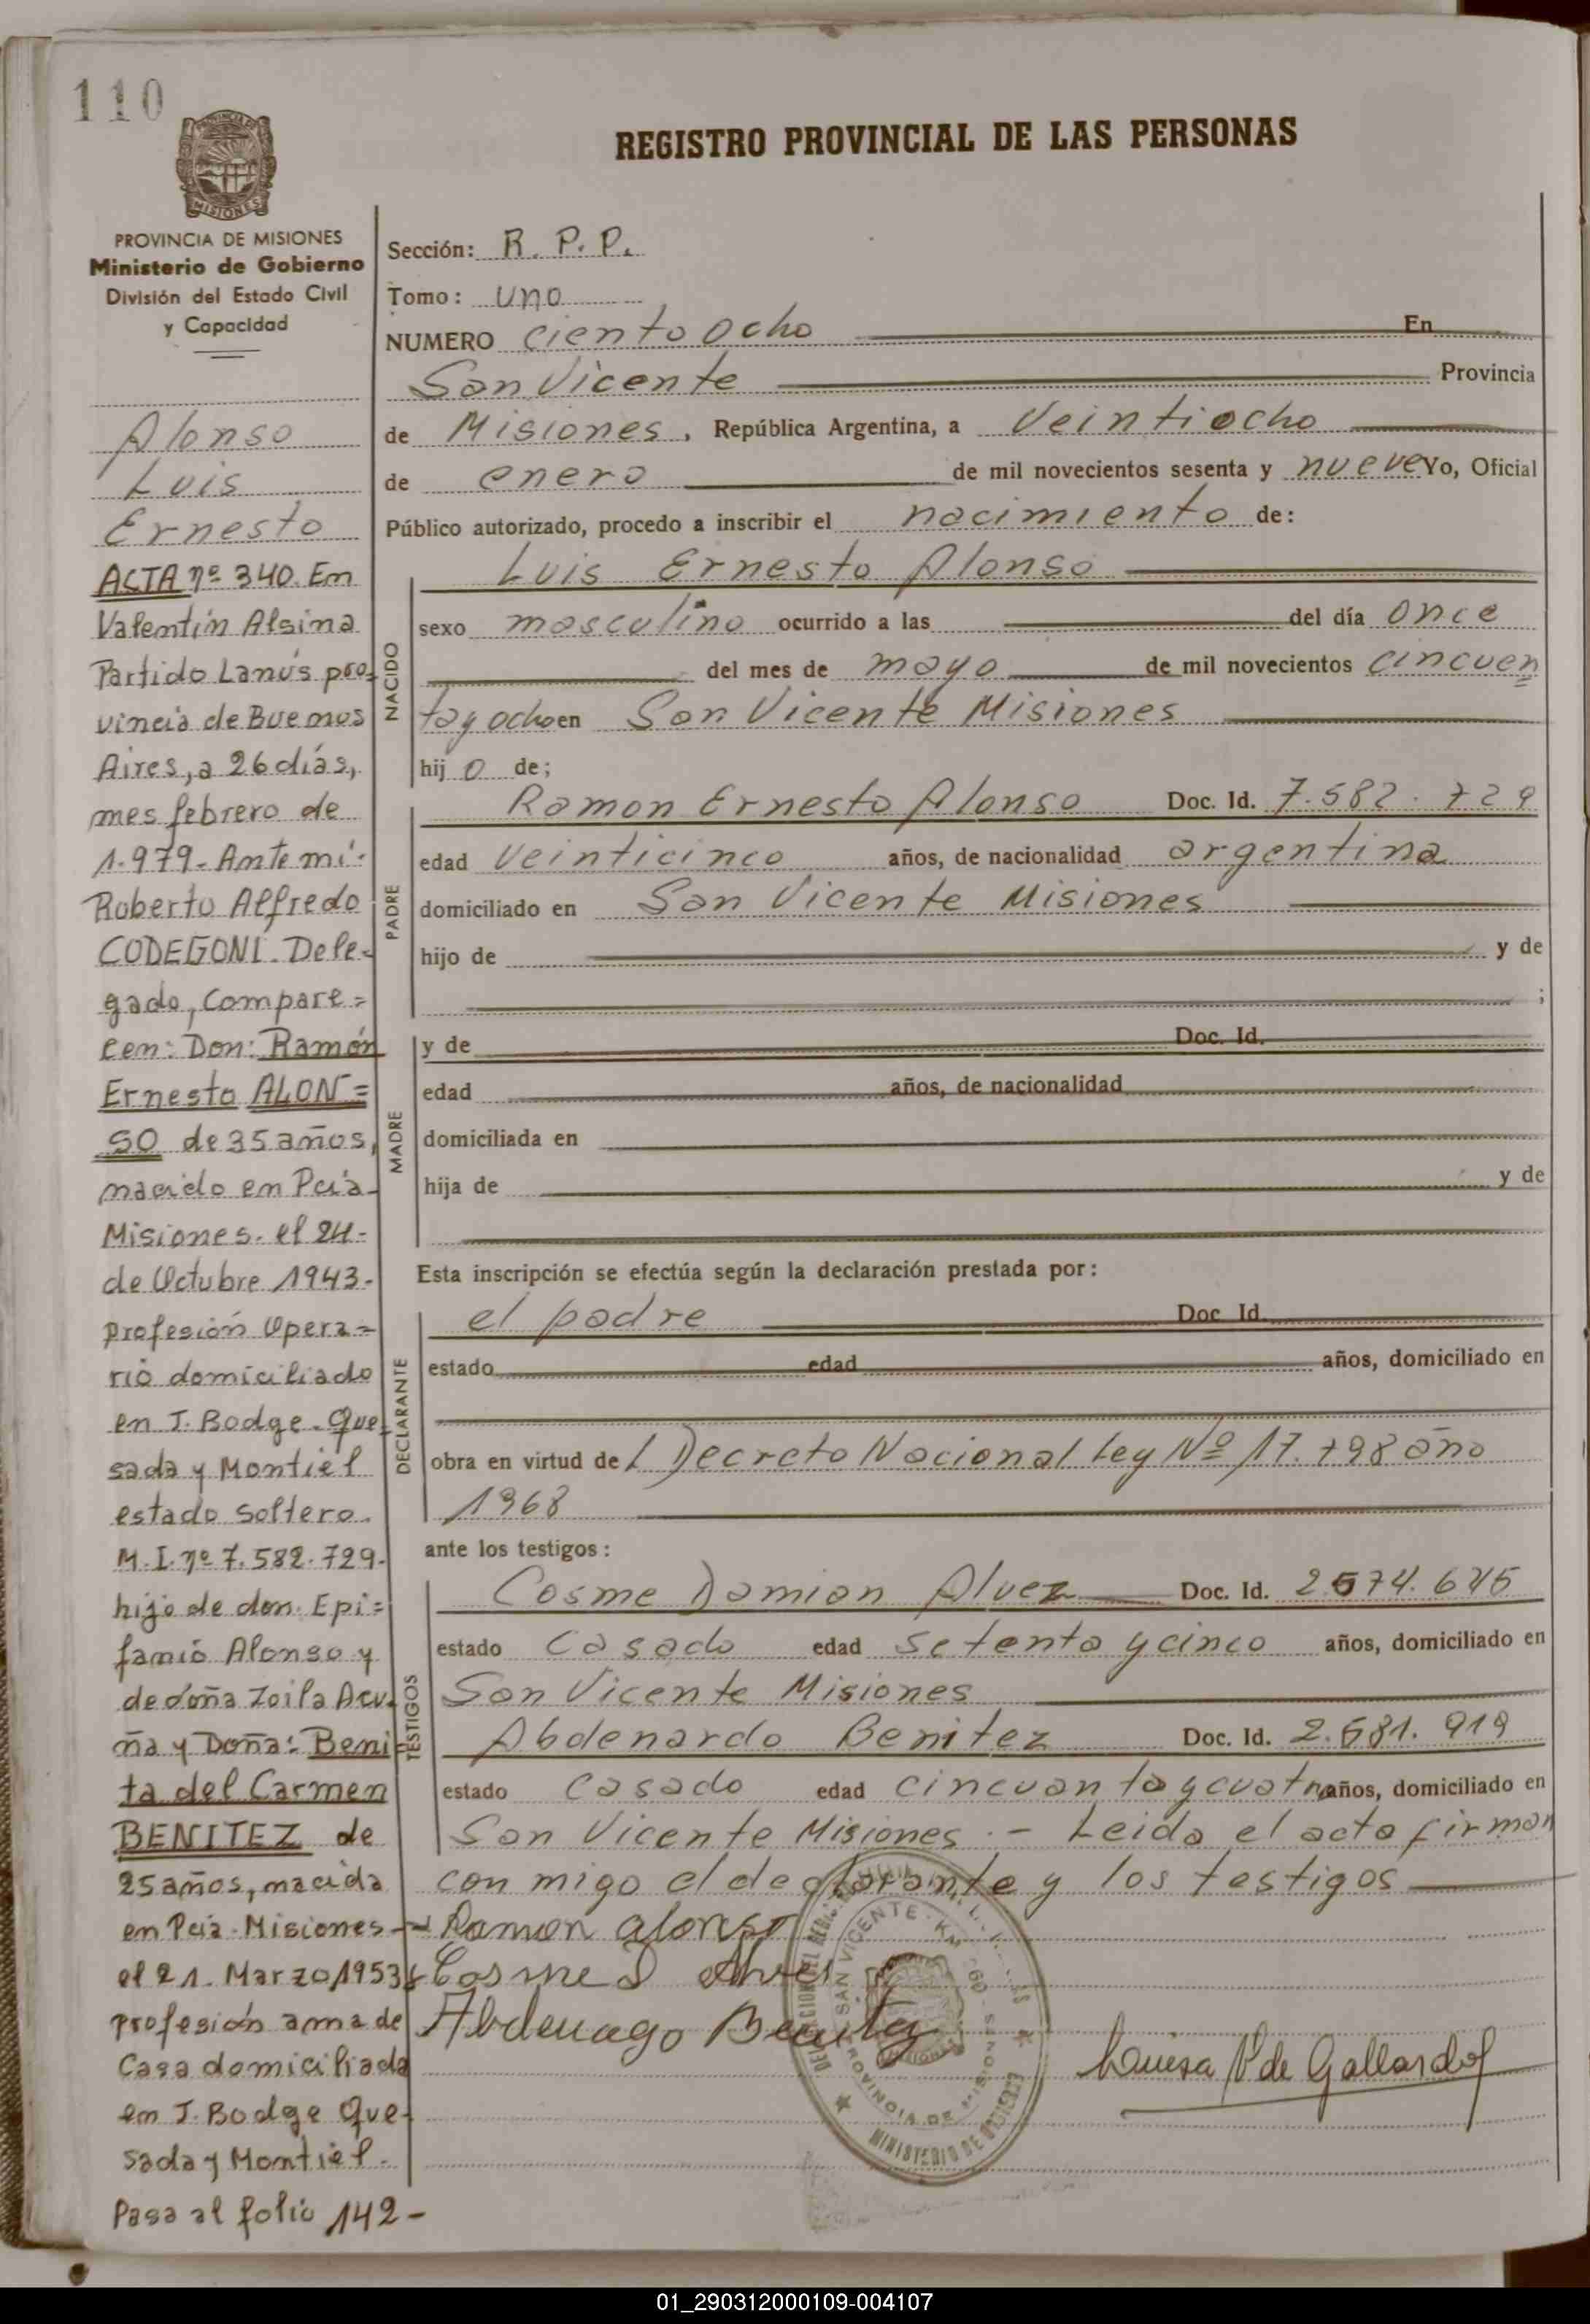 110
PROVINCIA DE MISIONES
Ministerio de Gobierno
División del Estado Civil
y Capacidad
Alonso
Luis
Ernesto
ACTA nº 340. En
Valentín Alsina
Partido Lanús pro-
vincia de Buenos
Aires, a 26 días,
mes febrero de
1.979- Ante mí:
Roberto Alfredo
CODEGONI. Dele-
gado, Compare=
cen: Don: Ramón
Ernesto ALON=
SO de 35 años,
nacido en Pcia-
Misiones. el 24-
de Octubre 1943-
profesión Opera=
rio domiciliado
en J. Bodge. Que-
sada y Montiel
estado soltero.
M.I. nº 7.582.729-
hijo de don. Epi=
fanio Alonso y
de doña Zoila Acu-
ña y Doña: Beni
ta del Carmen
BENITEZ de
25 años, nacida
en Pcia. Misiones-
el 21. Marzo 1953
profesión ama de
Casa domiciliada
en J. Bodge Que-
sada y Montiel.
Pasa al folio 142-
REGISTRO PROVINCIAL DE LAS PERSONAS
Sección: R. P. P.
Tomo: uno
NUMERO ciento ocho En
San Vicente Provincia
de Misiones, República Argentina, a Veintiocho
de enero de mil novecientos sesenta y nueve Yo, Oficial
Público autorizado, procedo a inscribir el nacimiento de:
NACIDO
Luis Ernesto Alonso
sexo masculino ocurrido a las del día once
del mes de mayo de mil novecientos cincuen
ta y ocho en San Vicente Misiones
hij o de;
PADRE
Ramon Ernesto Alonso Doc. Id. 7.582.729
edad veinticinco años, de nacionalidad argentina
domiciliado en San Vicente Misiones
hijo de y de
;
MADRE
y de Doc. Id.
edad años, de nacionalidad
domiciliada en
hija de y de
Esta inscripción se efectúa según la declaración prestada por:
DECLARANTE
el padre Doc Id.
estado edad años, domiciliado en
obra en virtud de l Decreto Nacional Ley Nº 17.798 año
1968
ante los testigos:
TESTIGOS
Cosme Damian Alvez Doc. Id. 2574.645
estado Casado edad setenta y cinco años, domiciliado en
San Vicente Misiones
Abdenardo Benitez Doc. Id. 2.581.919
estado Casado edad cincuanta y cuatro años, domiciliado en
San Vicente Misiones.- Leida el acta firman
con migo el declarante y los testigos
Ramon alonso
Cosme D Alves
Abdenago Benitez
SAN VICENTE - KM
PROVINCIA DE MISIONES
MINISTERIO DE
Luisa V de Gallardo
01_290312000109-004107